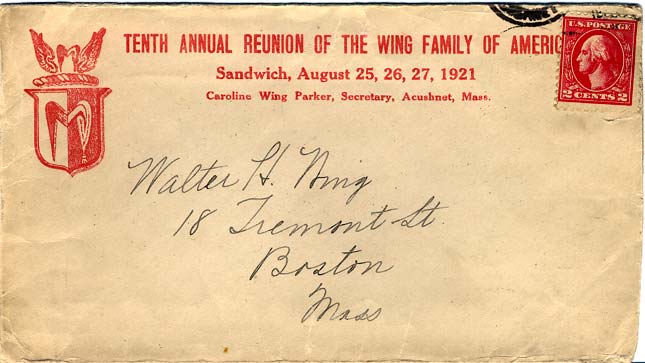 TENTH ANNUAL REUNION OF THE WING FAMILY OF AMERIC
Sandwich, August 25, 26, 27, 1921
Caroline Wing Parker, Secretary, Acushnet, Mass.
U.S. POSTAGE
2 CENTS 2
Walter H. Wing
18 Tremont St.
Boston
Mass